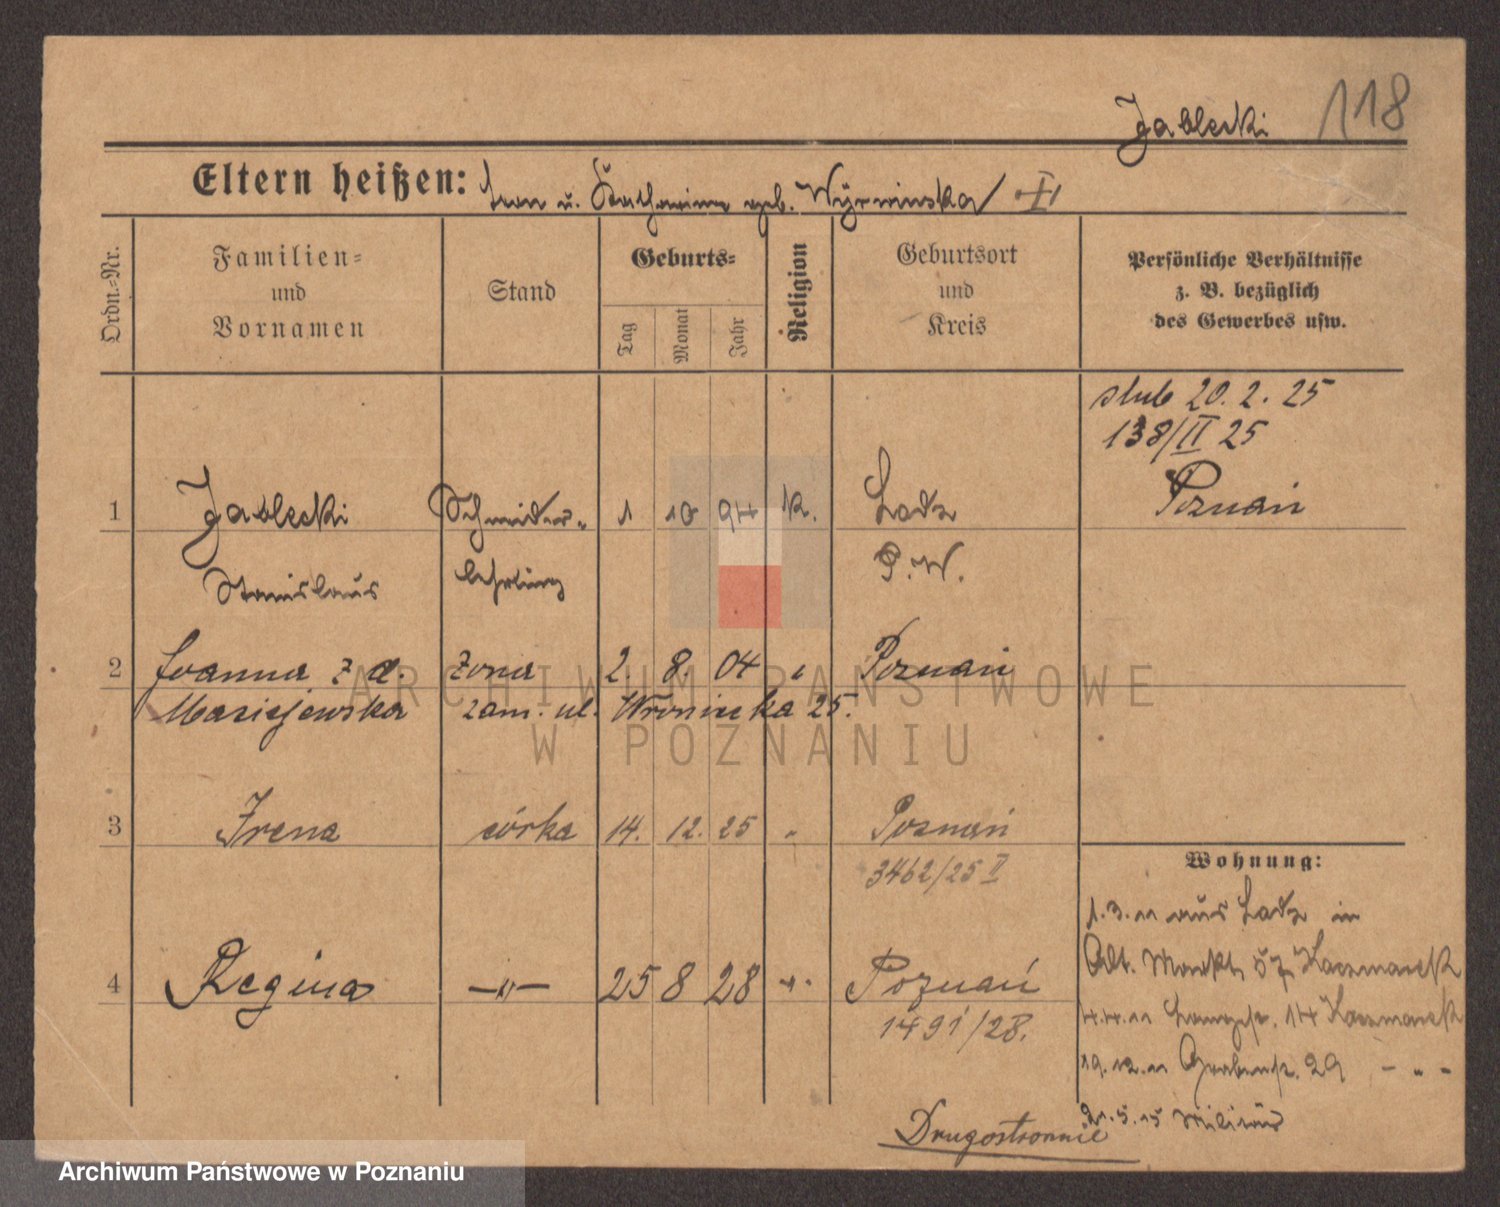 Jablecki 118
Eltern heißen: u. Katharina geb.
Ordn.-Nr.
Familien- und Vornamen
Stand
Geburts-
Tag
Monat
Jahr
Religion
Geburtsort und Kreis
Persönliche Verhältnisse
z. B. bezüglich
des Gewerbes usw.
ślub 20. 2. 25
138/II 25
Poznań
1 Jablecki Schneider- 1 10 94 k. Lodz
Stanislaus lehrling P. W.
2 Joanna z d. żona 2. 8. 04 " Poznań
Maciejewska zam. ul. Wroniecka 25.
3 Irena córka 14. 12. 25 " Poznań
3462/25 II
4 Regina —"— 25 8 28 " Poznań
1491/28.
Wohnung:
1. 3. 11 aus Lodz in
Alt. Markt 57 Kaczmarek
4.4.11 Langestr. 14 Kaczmarek
19.12.11 Grabenstr. 29 - " -
21.5.15 Militär
Drugostronnie
ARCHIWUM PAŃSTWOWE
W POZNANIU
Archiwum Państwowe w Poznaniu